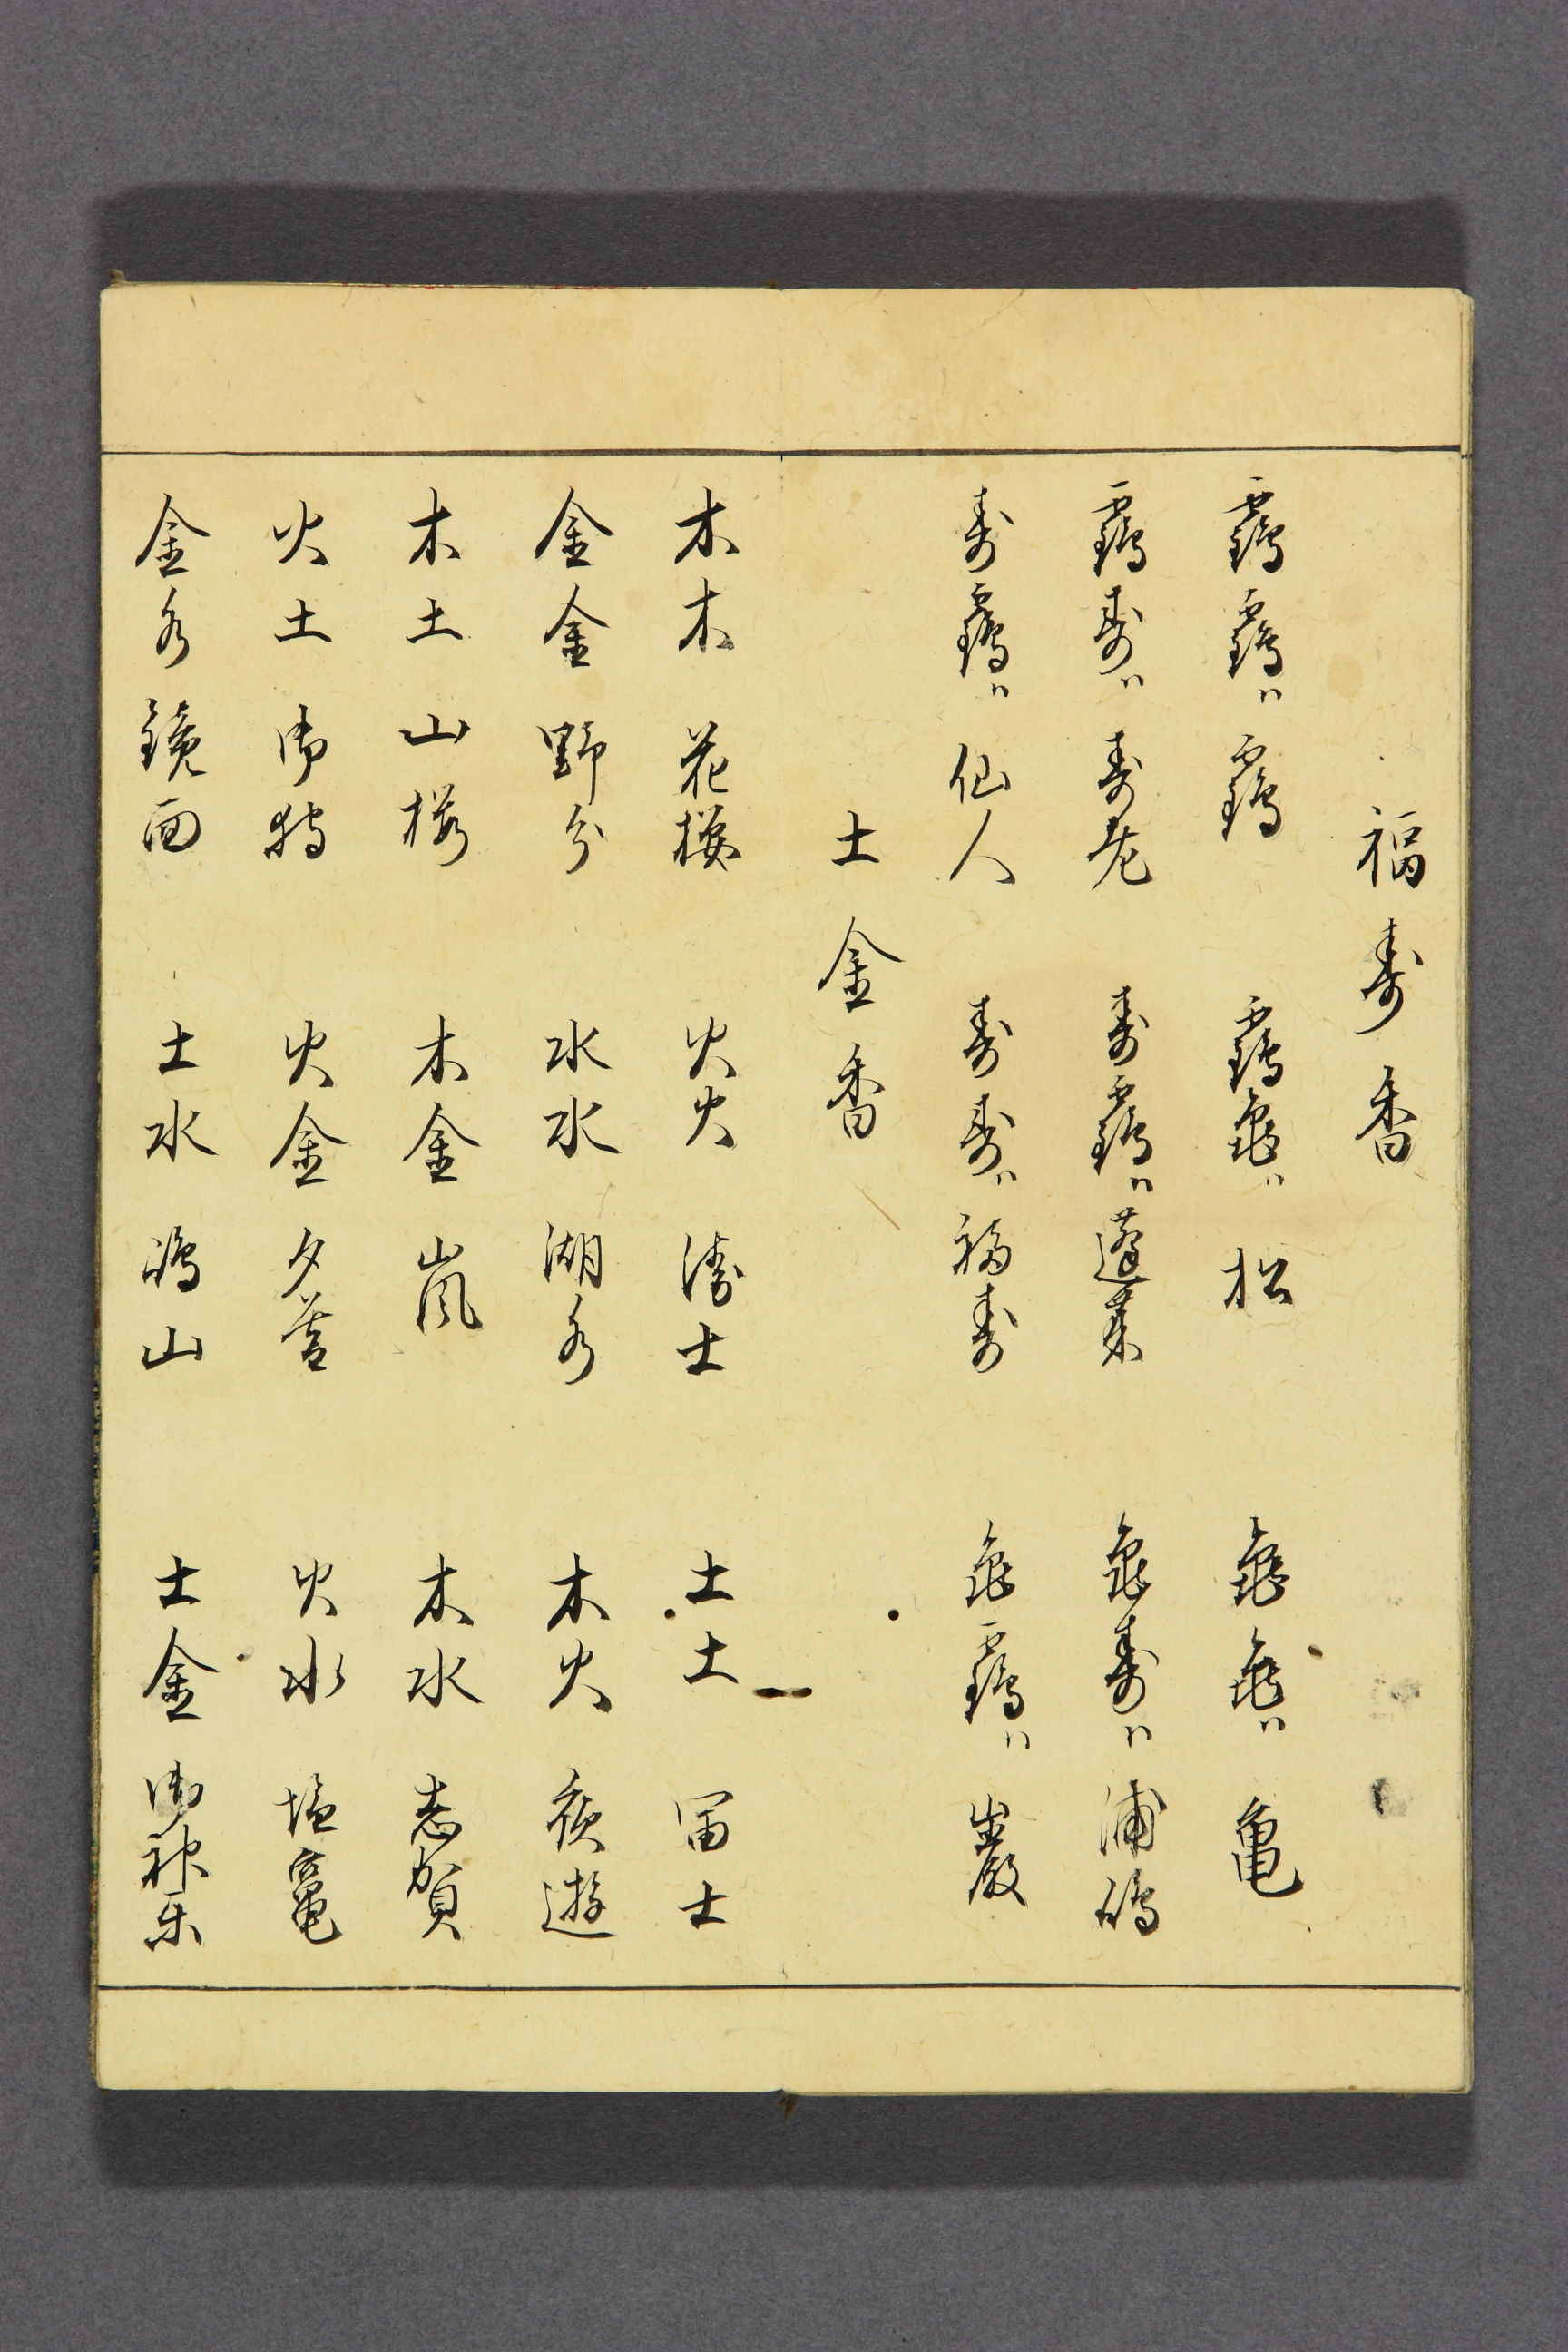 福寿香
靏靏ハ 靏 靏亀ハ 松 亀亀ハ 亀
靏寿ハ 寿老 寿靏ハ 蓬莱 亀寿ハ 浦嶋
寿靏ハ 仙人 寿寿ハ 福寿 亀靏ハ 巌
土金香
木木 花櫻 火火 士 土土 冨士
金金 野分 水水 湖水 木火 夜遊
木土 山桜 木金 嵐 木水 志賀
火土 御狩 火金 夕 火水 塩竈
金水 鏡面 土水 嶋山 土金 御神楽